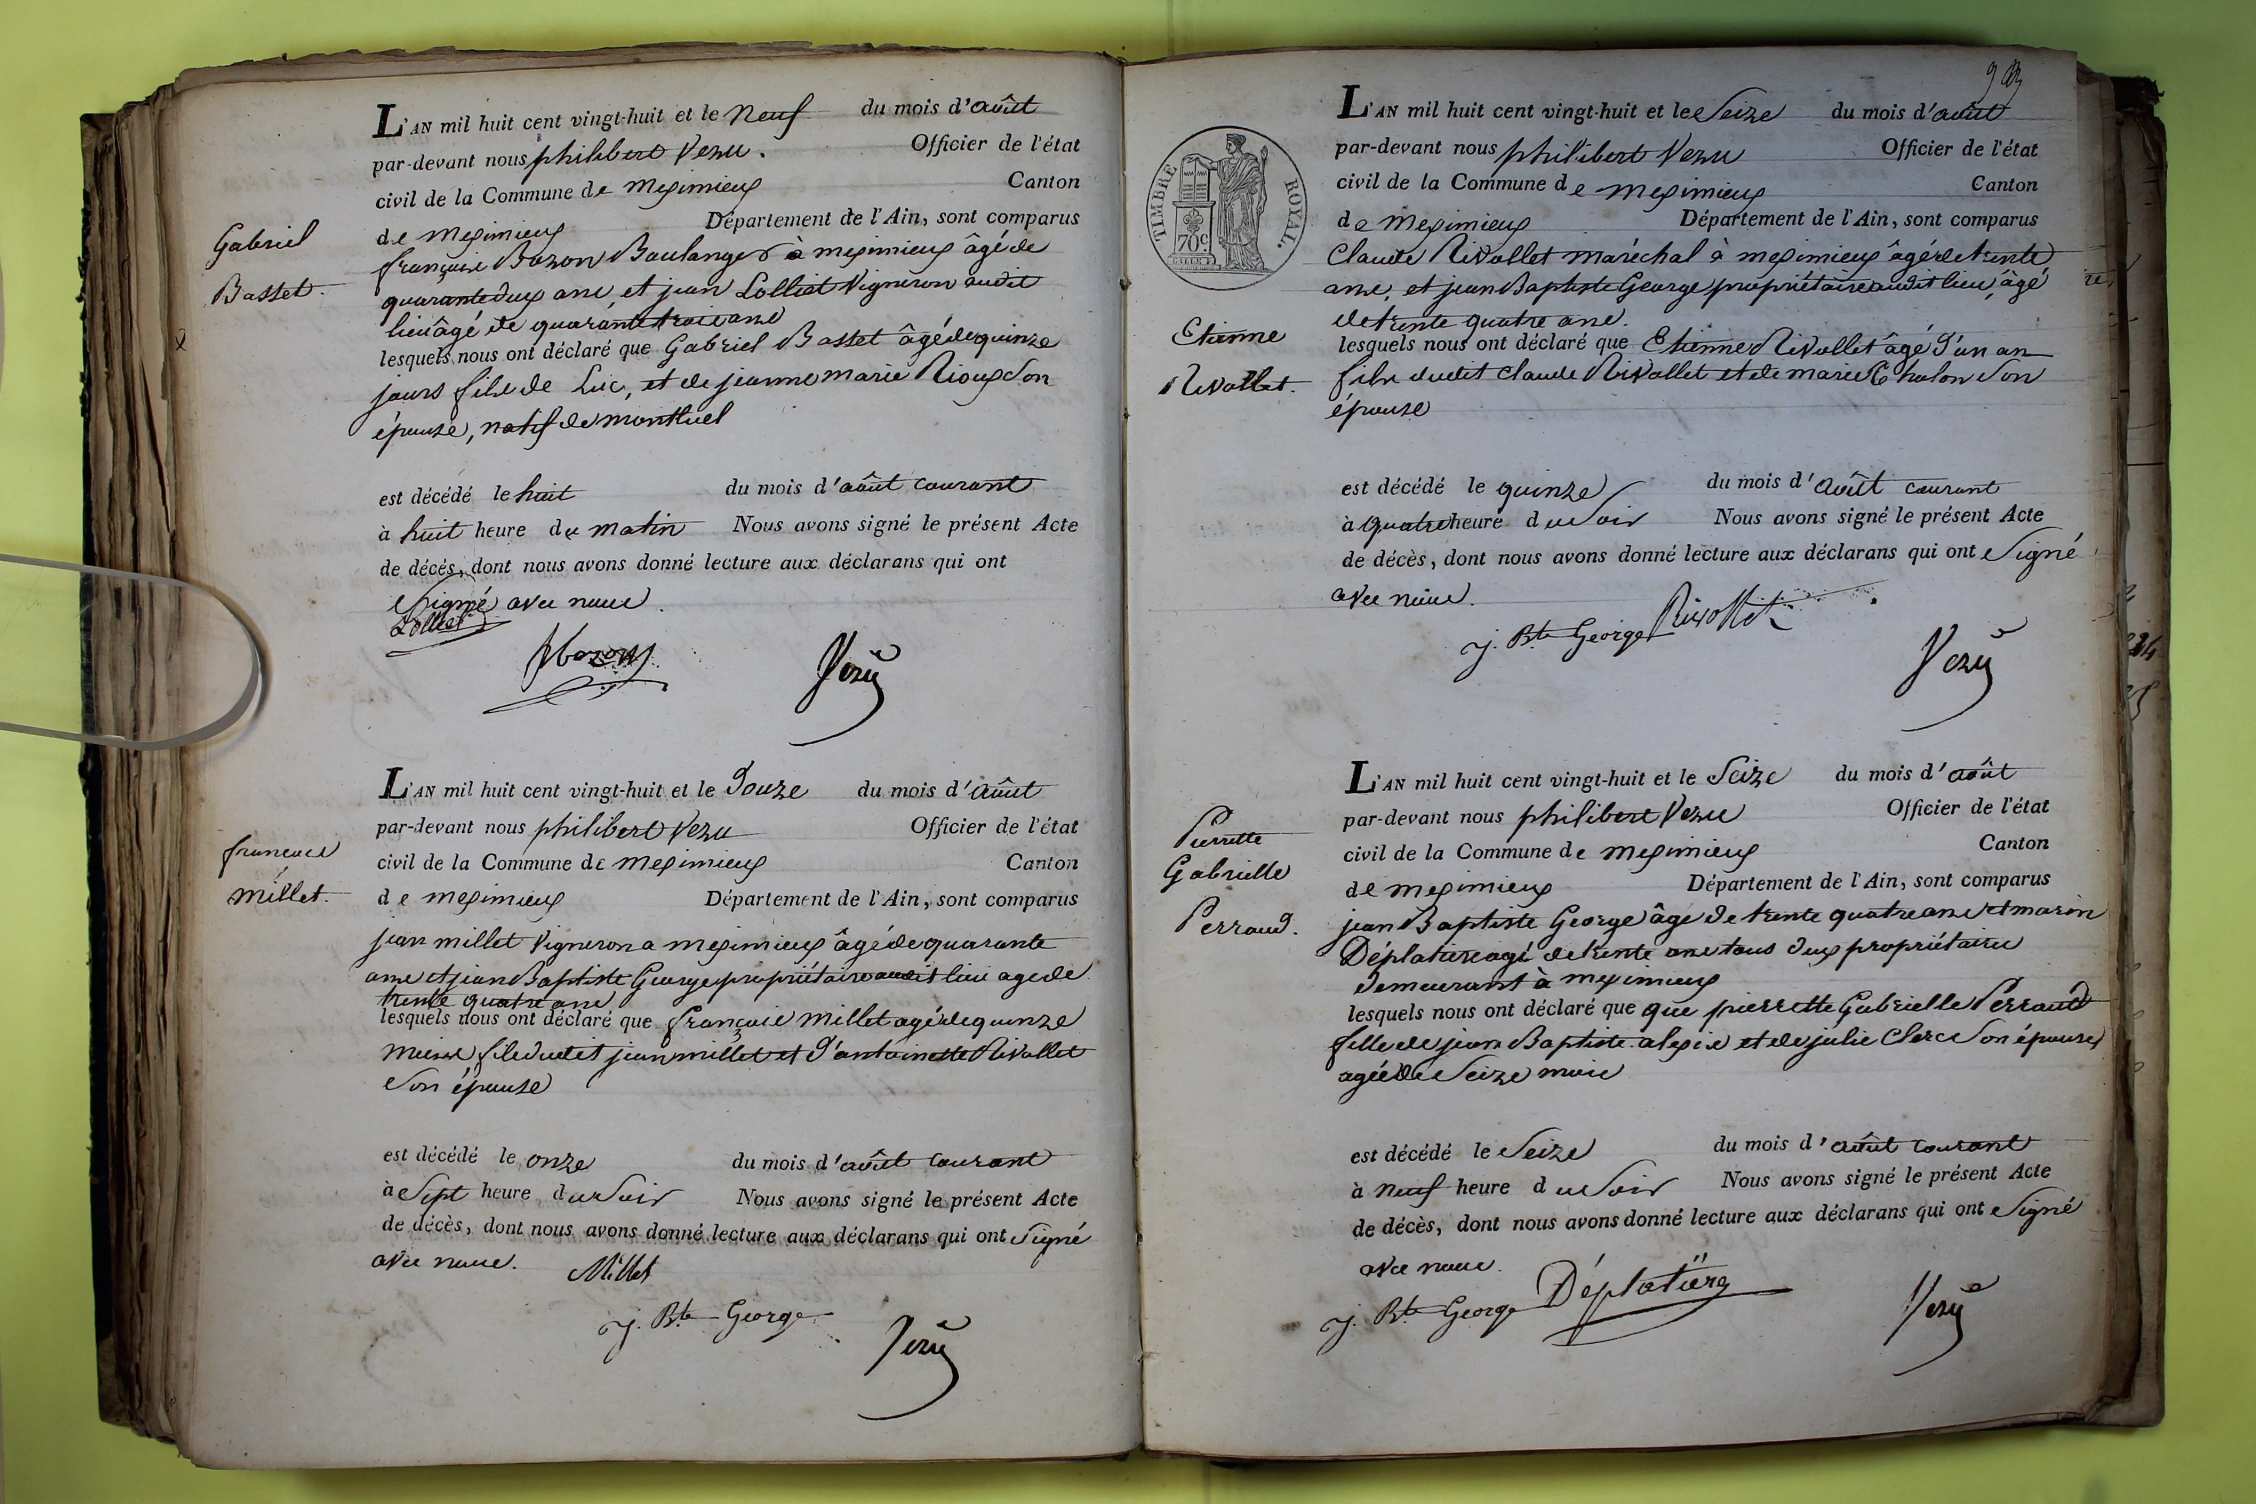 L'AN mil huit cent vingt-huit et le neuf du mois d'août
par-devant nous philibert Vezu. Officier de l'état
civil de la Commune de meximieux Canton
de meximieux Département de l'Ain, sont comparus
Gabriel
Bastet.
françois Bozon Boulanger à meximieux âgé de
quarante deux ans, et jean Lolliet Vigneron audit
lieu âgé de quarante trois ans
lesquels nous ont déclaré que Gabriel Bastet âgé de quinze
jours fils de Luc, et de jeanne marie Rioux son
épouse, natif de montluel
est décédé le huit du mois d'août courant
à huit heure du matin Nous avons signé le présent Acte
de décès, dont nous avons donné lecture aux déclarans qui ont
signé avec nous.
Lolliet
fbozon
Vezu
L'AN mil huit cent vingt-huit et le Douze du mois d'août
par-devant nous philibert Vezu Officier de l'état
civil de la Commune de meximieux Canton
de meximieux Département de l'Ain, sont comparus
françois
millet.
jean millet Vigneron a meximieux âgé de quarante
ans et jean Baptiste George propriétaire audit lieu age de
trente quatre ans
lesquels nous ont déclaré que françois millet agé de quinze
mois fils dudit jean millet et d'antoinette Rivollet
Son épouse
est décédé le onze du mois d'août courant
à Sept heure du Soir Nous avons signé le présent Acte
de décès, dont nous avons donné lecture aux déclarans qui ont Signé
avec nous.
Millet
J. Bte George
Vezu
L'AN mil huit cent vingt-huit et le Seize du mois d'août
par-devant nous philibert Vezu Officier de l'état
civil de la Commune de meximieux Canton
de meximieux Département de l'Ain, sont comparus
TIMBRE ROYAL.
70c.
Etienne
Rivollet.
Claude Rivollet maréchal à meximieux âgé de trente
ans, et jean Baptiste George propriétaire audit lieu, âgé
de trente quatre ans.
lesquels nous ont déclaré que Etienne Rivollet âgé d'un an
fils dudit claude Rivollet et de marie Cholon Son
épouse
est décédé le quinze du mois d'août courant
à quatre heure du Soir Nous avons signé le présent Acte
de décès, dont nous avons donné lecture aux déclarans qui ont Signé
avec nous.
J. Bte George Rivollet
Vezu
L'AN mil huit cent vingt-huit et le Seize du mois d'août
par-devant nous philibert Vezu Officier de l'état
civil de la Commune de meximieux Canton
de meximieux Département de l'Ain, sont comparus
Pierrette
Gabrielle
Perraud.
jean Baptiste George âge de trente quatre ans et marin
Déplatiere agé de trente ans tous deux propriétaires
demeurant à meximieux
lesquels nous ont déclaré que que pierrette Gabrielle Perraud
fille de jean Baptiste alexis et de julie Clerc Son épouse
agée de Seize mois
est décédé le Seize du mois d'août courant
à neuf heure du Soir Nous avons signé le présent Acte
de décès, dont nous avons donné lecture aux déclarans qui ont Signé
avec nous.
J. Bte George Déplatiere
Vezu